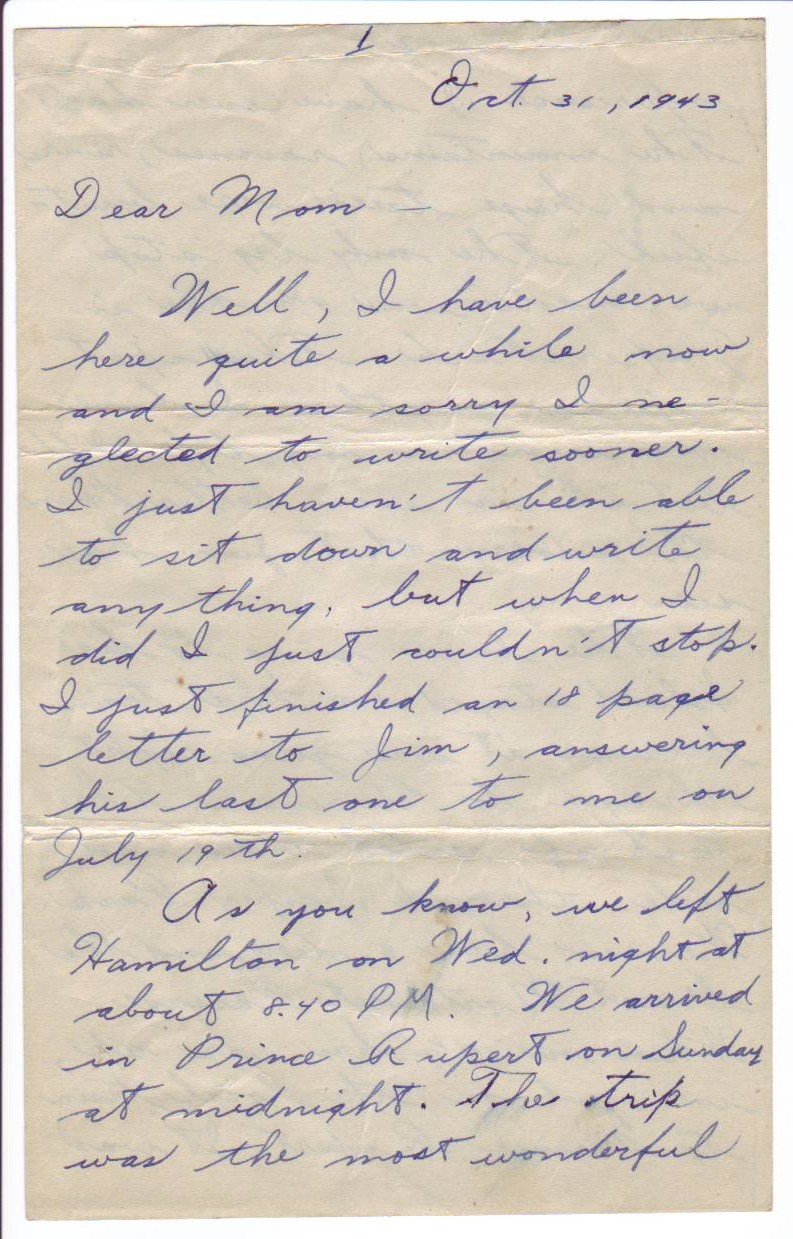 1
Oct. 31, 1943
Dear Mom —
Well, I have been
here quite a while now
and I am sorry I ne-
glected to write sooner.
I just haven't been able
to sit down and write
anything, but when I
did I just couldn't stop.
I just finished an 18 page
letter to Jim, answering
his last one to me on
July 19th.
As you know, we left
Hamilton on Wed. night at
about 8.40 PM. We arrived
in Prince Rupert on Sunday
at midnight. The trip
was the most wonderful